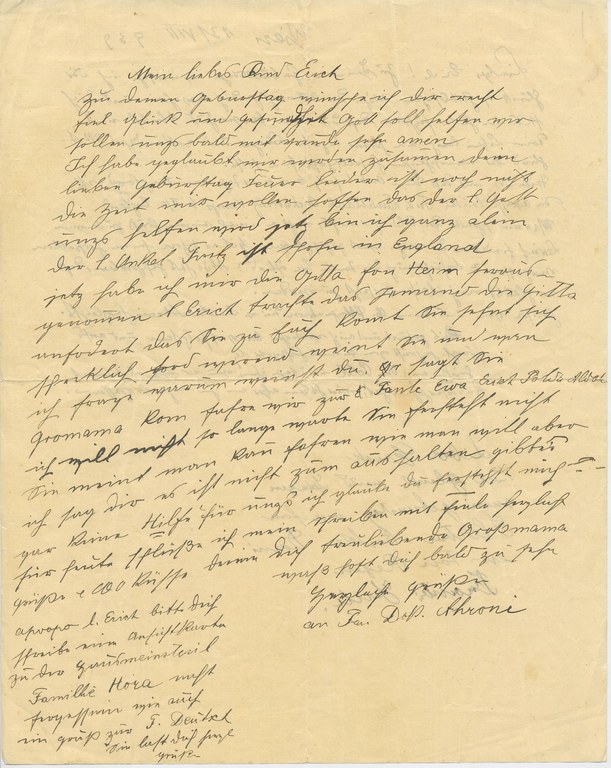 Mein liebes Kind Erich
Zu deinen Geburstag winsche ich dir recht
fiel Glück und gesundheit Gott soll helfen wir
sollen unzs bald mit freude sehn amen
Ich habe geglaubt wir werden zusamen dein
lieben Geburstag Feuer leider ist noch nicht
die Zeit wir wollen hoffen das der l. Gott
unzs helfen wird jetz bin ich ganz alein
der l Onkel Fritz ist schohn in England
jetz habe ich mir die Gitta fon Heim heraus-
genomen l Erich trachte das jemand die Gitta
anfodert das Sie zu Euch komt Sie sehnt sich
schreklich weinet Sie und wen
ich frage warum weinst du. sagt Sie
Gromama kom fahre wir zur l Tante Ewa Erich Poldi
ich will nicht so lange warte Sie fersteht nicht
Sie meint man kan fahren wie man will aber
ich sag dir es ist nicht zum aushalten gibt es
gar keine Hilfe für unzs ich glaube du ferstehst mich
für heute schlieβe ich mein schreiben mit fiele herzlich
grüße 100 küsse deine dich treuliebende Großmama
was hoft dich bald zu sehn
Herzliche Grüße
an Fa. Ahroni
apropo l. Erich bitt dich
schreibe eine Ansichtkarte
zu der Hausmeinsteril
Familie Hora nicht
fergessen wie auch
ein gruß zur F. Deutsch
Sie last dich herzl
grüßen